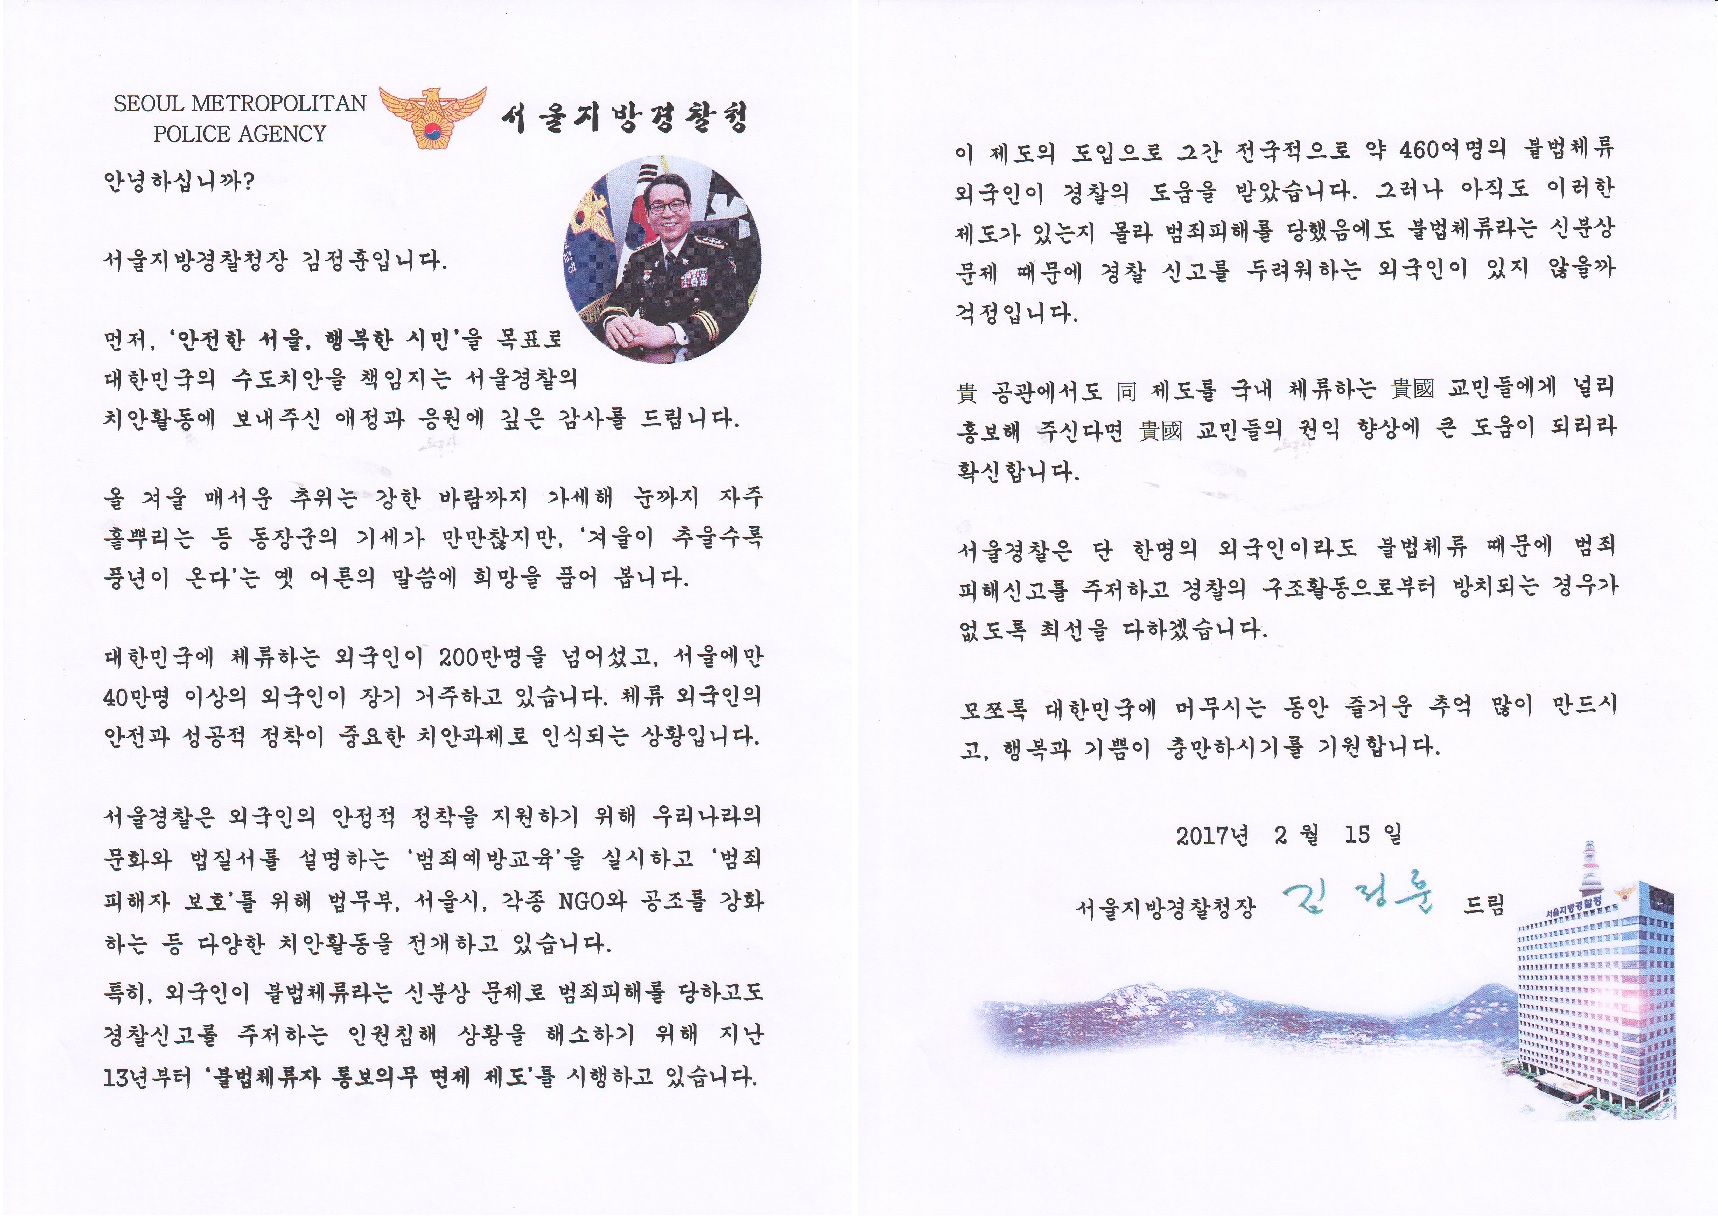 SEOUL METROPOLITAN
POLICE AGENCY
서울지방경찰청
안녕하십니까?
서울지방경찰청장 김정훈입니다.
먼저, ‘안전한 서울, 행복한 시민’을 목표로
대한민국의 수도치안을 책임지는 서울경찰의
치안활동에 보내주신 애정과 응원에 깊은 감사를 드립니다.
올 겨울 매서운 추위는 강한 바람까지 가세해 눈까지 자주
흩뿌리는 등 동장군의 기세가 만만찮지만, ‘겨울이 추울수록
풍년이 온다’는 옛 어른의 말씀에 희망을 품어 봅니다.
대한민국에 체류하는 외국인이 200만명을 넘어섰고, 서울에만
40만명 이상의 외국인이 장기 거주하고 있습니다. 체류 외국인의
안전과 성공적 정착이 중요한 치안과제로 인식되는 상황입니다.
서울경찰은 외국인의 안정적 정착을 지원하기 위해 우리나라의
문화와 법질서를 설명하는 ‘범죄예방교육’을 실시하고 ‘범죄
피해자 보호’를 위해 법무부, 서울시, 각종 NGO와 공조를 강화
하는 등 다양한 치안활동을 전개하고 있습니다.
특히, 외국인이 불법체류라는 신분상 문제로 범죄피해를 당하고도
경찰신고를 주저하는 인권침해 상황을 해소하기 위해 지난
13년부터 ‘불법체류자 통보의무 면제 제도’를 시행하고 있습니다.
이 제도의 도입으로 그간 전국적으로 약 460여명의 불법체류
외국인이 경찰의 도움을 받았습니다. 그러나 아직도 이러한
제도가 있는지 몰라 범죄피해를 당했음에도 불법체류라는 신분상
문제 때문에 경찰 신고를 두려워하는 외국인이 있지 않을까
걱정입니다.
貴 공관에서도 同 제도를 국내 체류하는 貴國 교민들에게 널리
홍보해 주신다면 貴國 교민들의 권익 향상에 큰 도움이 되리라
확신합니다.
서울경찰은 단 한명의 외국인이라도 불법체류 때문에 범죄
피해신고를 주저하고 경찰의 구조활동으로부터 방치되는 경우가
없도록 최선을 다하겠습니다.
모쪼록 대한민국에 머무시는 동안 즐거운 추억 많이 만드시
고, 행복과 기쁨이 충만하시기를 기원합니다.
2017년 2 월 15 일
서울지방경찰청장 김정훈 드림
서울지방경찰청